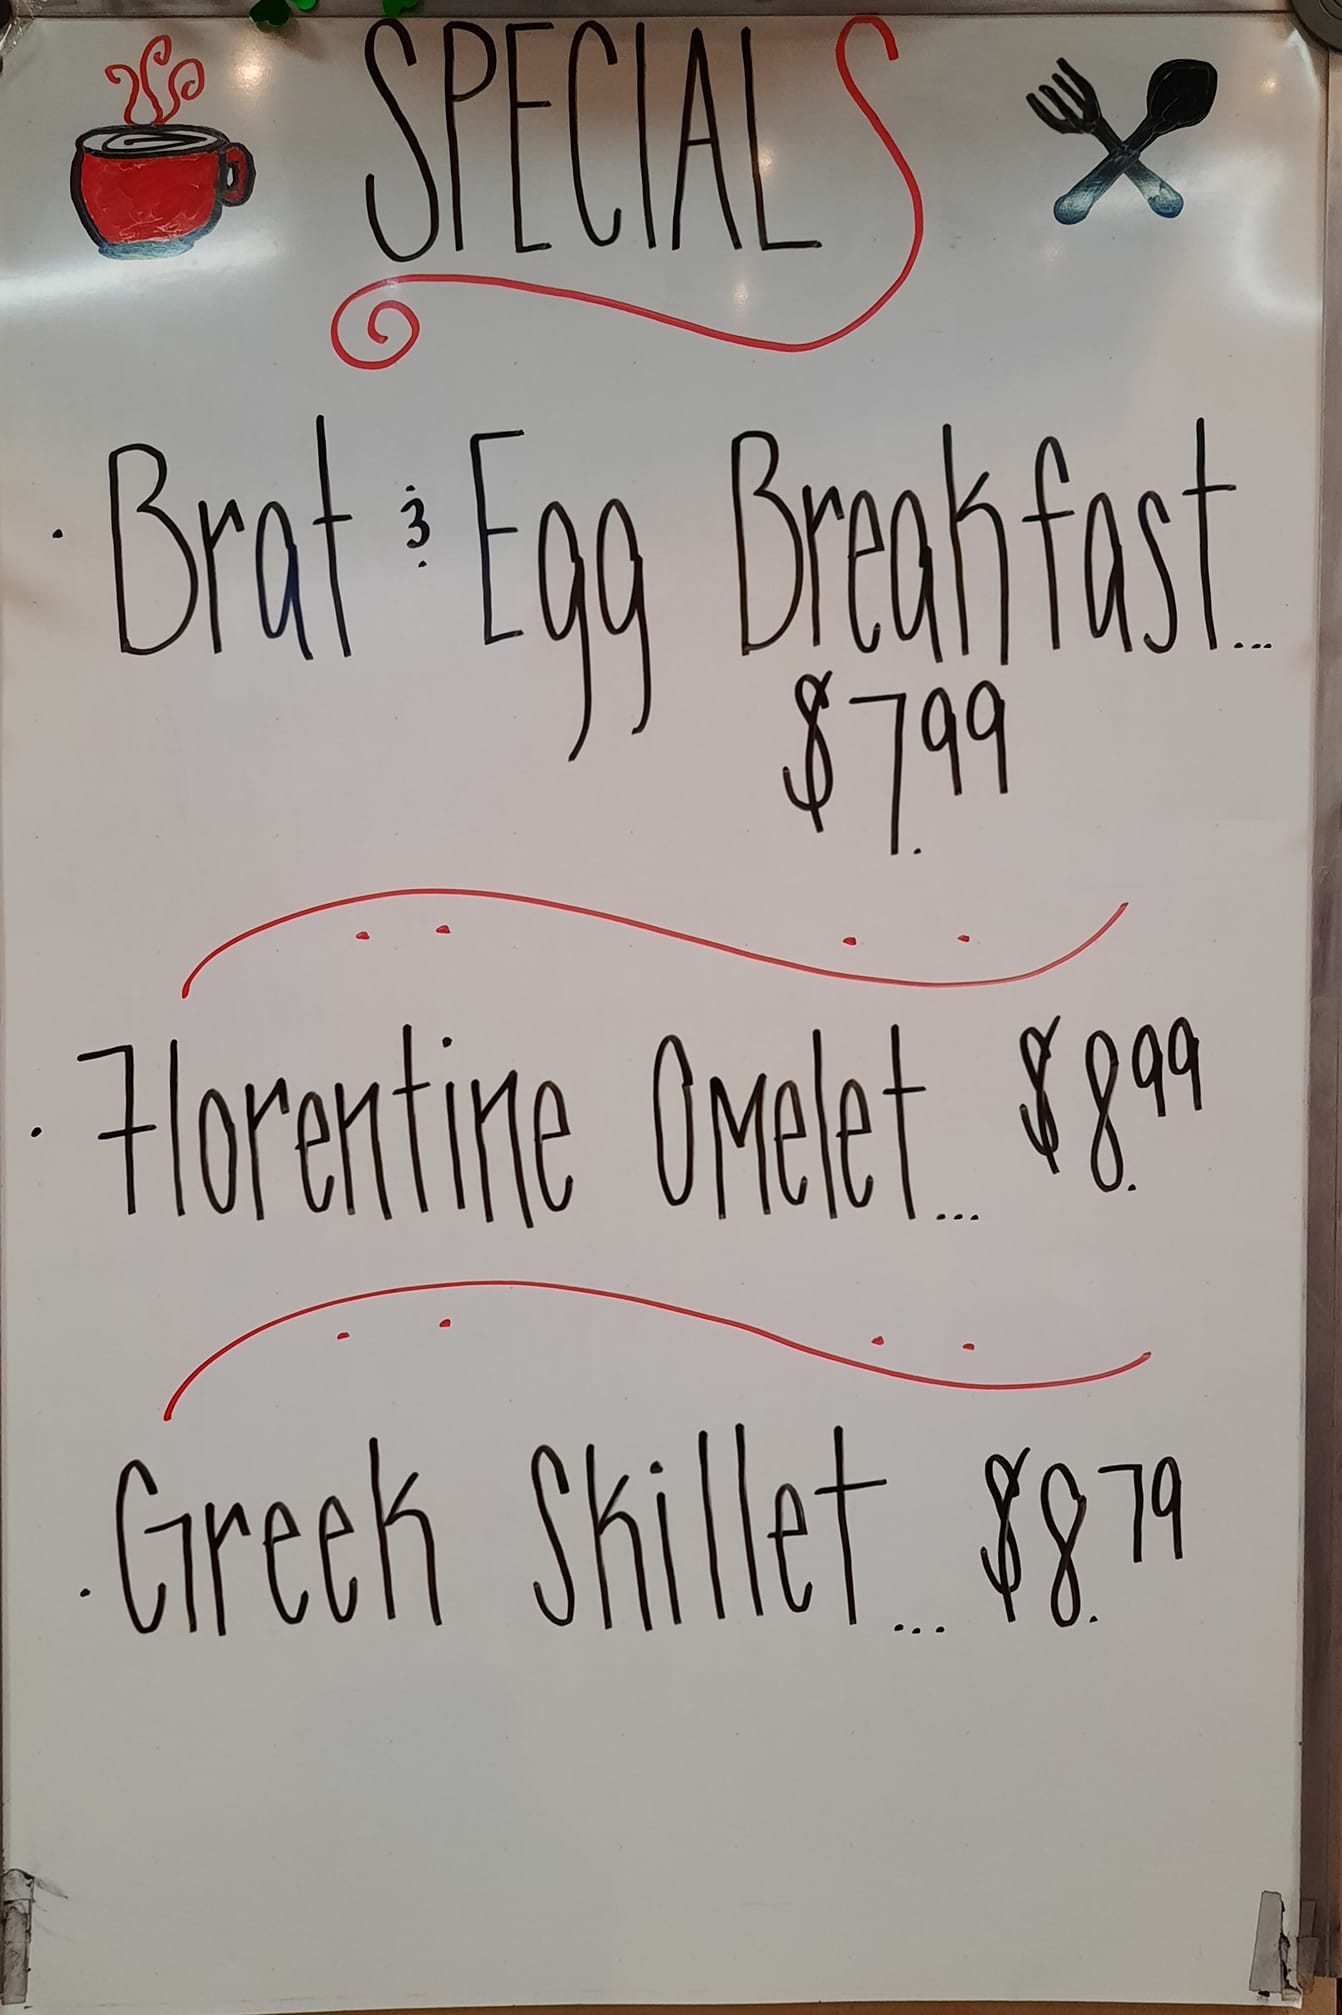 SPECIALS
· Brat & Egg Breakfast...
$7.99
· Florentine Omelet... $8.99
· Greek Skillet... $8.79